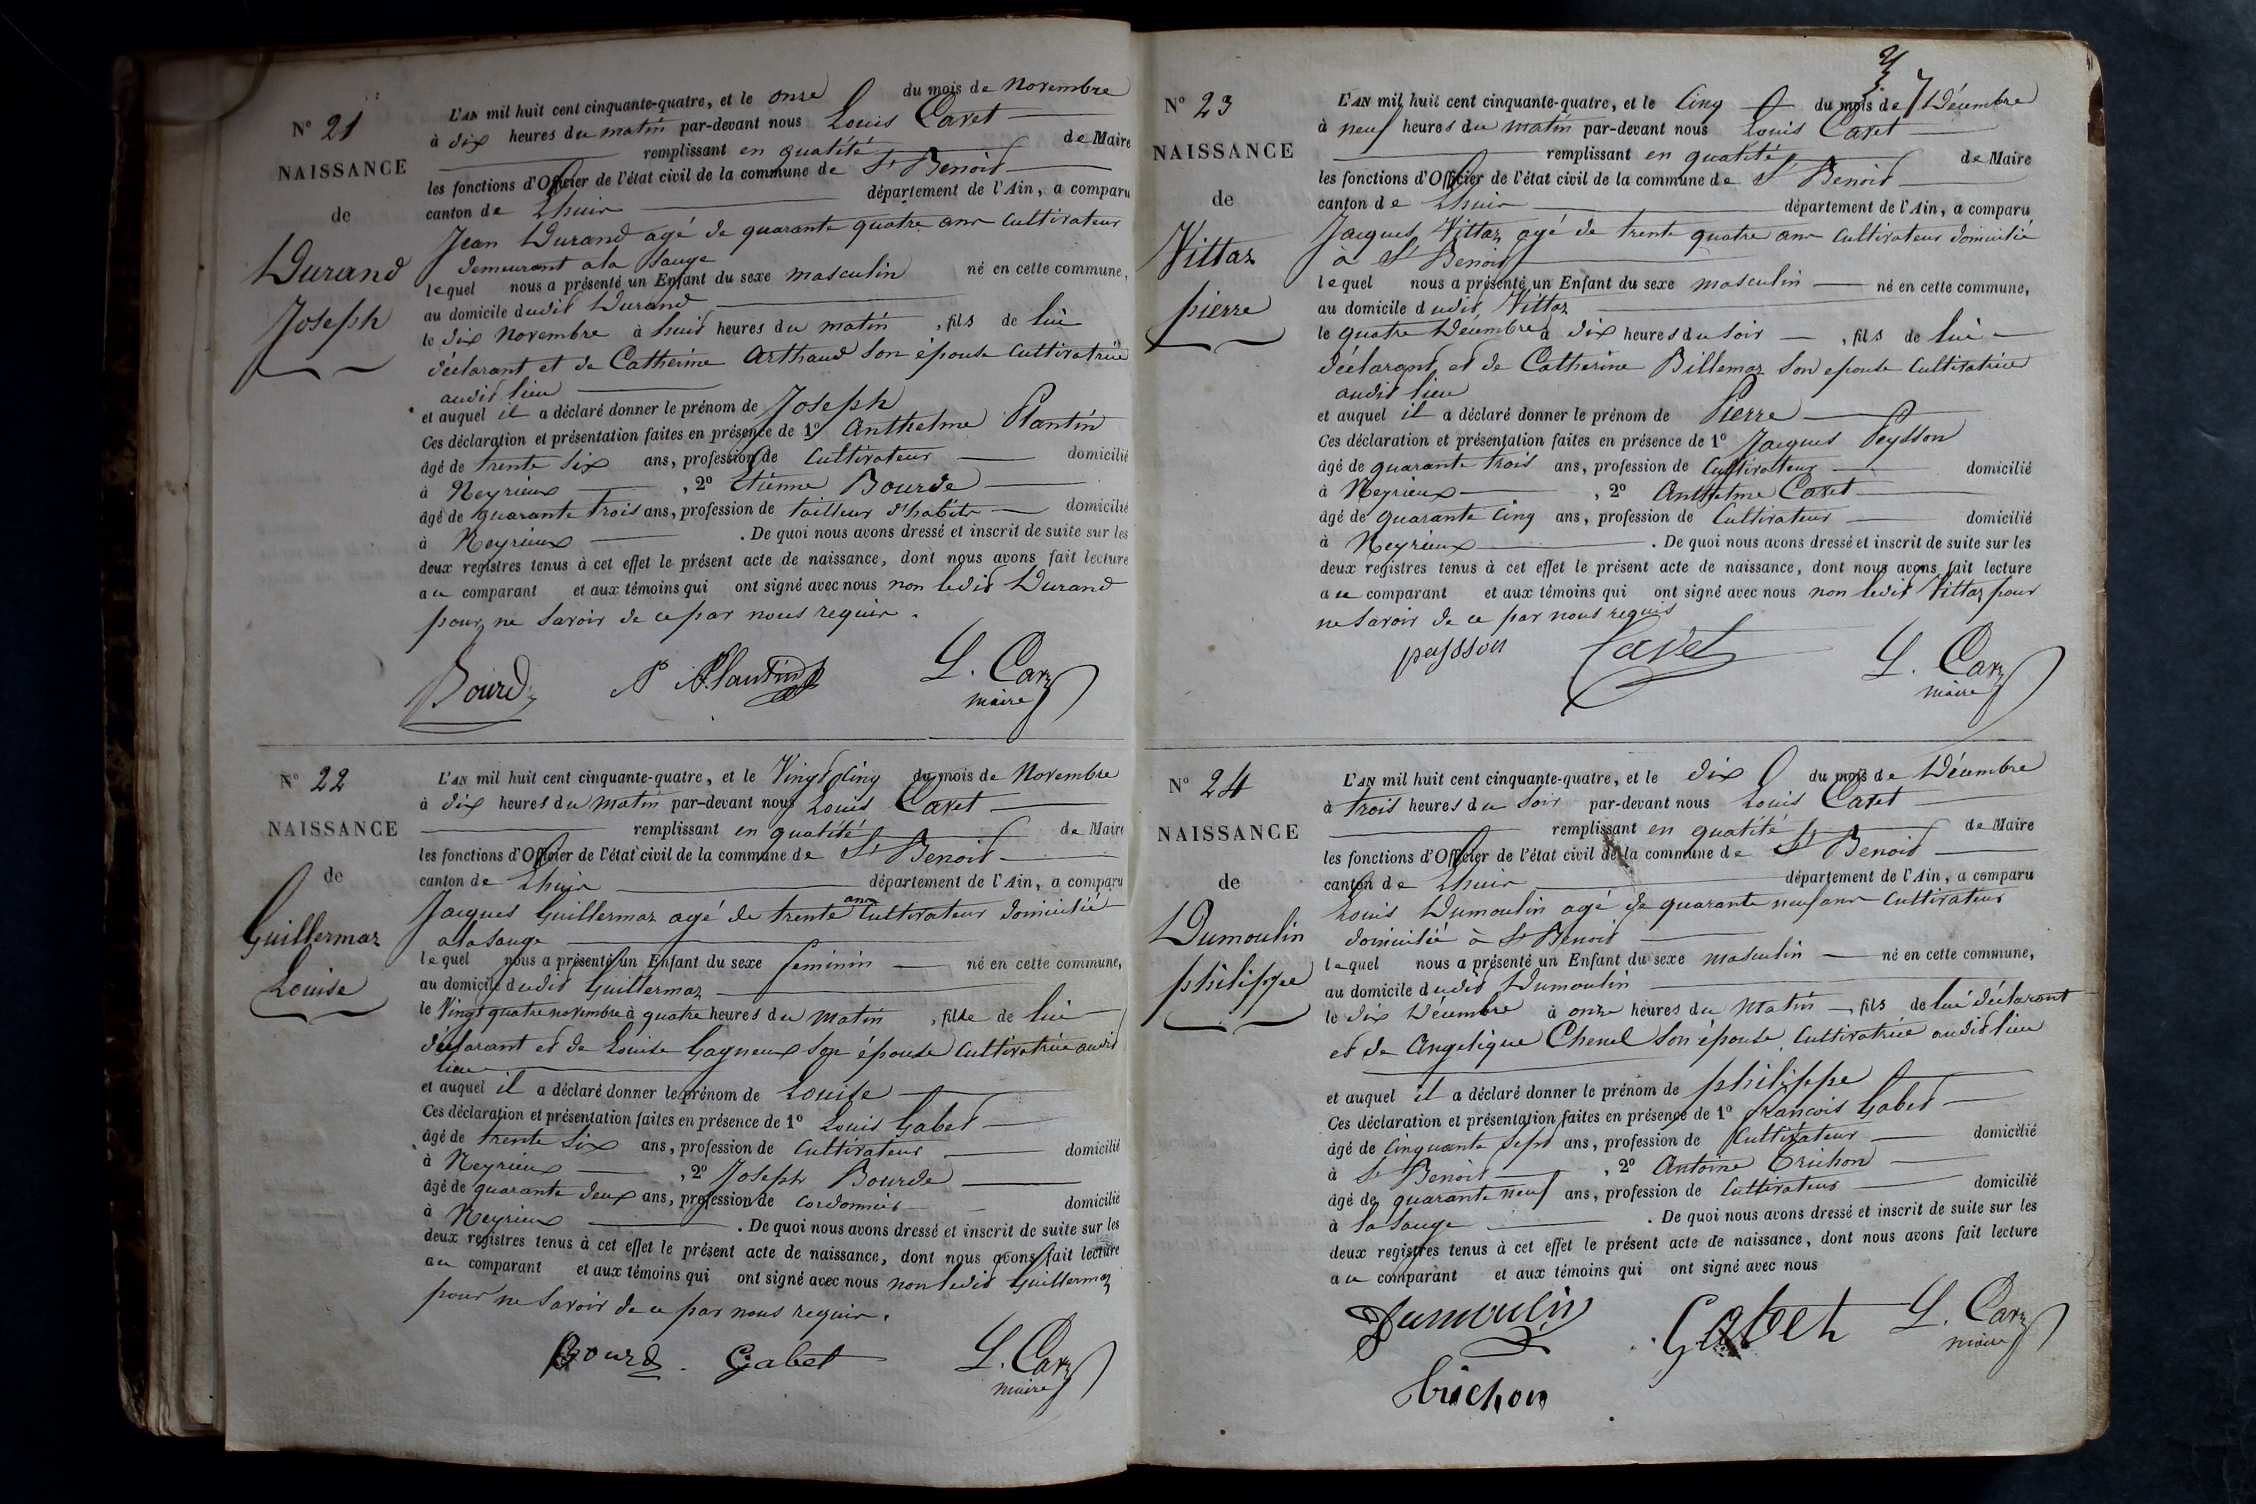 N° 21
NAISSANCE
de
Durand
Joseph
L'AN mil huit cent cinquante-quatre, et le onze du mois de Novembre
à dix heures du matin par-devant nous Louis Cavet
remplissant en qualité de Maire
les fonctions d'Officier de l'état civil de la commune de St Benoit
canton de Lhuis département de l'Ain, a comparu
Jean Durand agé de quarante quatre ans Cultivateur
demeurant a la Sauge
lequel nous a présenté un Enfant du sexe masculin né en cette commune,
au domicile dudit Durand
le dix Novembre à huit heures du matin , fils de lui
déclarant et de Catherine Arthaud son épouse Cultivatrice
audit lieu
et auquel il a déclaré donner le prénom de Joseph
Ces déclaration et présentation faites en présence de 1° Anthelme Plantin
âgé de trente six ans, profession de Cultivateur domicilié
à Neyrieux , 2° Etienne Bourde
âgé de quarante trois ans, profession de tailleur d'habits domicilié
à Neyrieux . De quoi nous avons dressé et inscrit de suite sur les
deux registres tenus à cet effet le présent acte de naissance, dont nous avons fait lecture
au comparant et aux témoins qui ont signé avec nous non ledit Durand
pour ne savoir de ce par nous requis.
Bourde Plantin L. Cavet
maire
N° 22
NAISSANCE
de
Guillermaz
Louise
L'AN mil huit cent cinquante-quatre, et le Vingt cinq du mois de Novembre
à dix heures du matin par-devant nous Louis Cavet
remplissant en qualité de Maire
les fonctions d'Officier de l'état civil de la commune de St Benoit
canton de Lhuis département de l'Ain, a comparu
Jacques Guillermaz agé de trente ans Cultivateur domicilié
a la Sauge
lequel nous a présenté un Enfant du sexe feminin né en cette commune,
au domicile dudit Guillermaz
le Vingt quatre novembre à quatre heures du matin , fille de lui
déclarant et de Louise Gagneux son épouse Cultivatrice audit
lieu
et auquel il a déclaré donner le prénom de Louise
Ces déclaration et présentation faites en présence de 1° Louis Gabet
âgé de trente six ans, profession de Cultivateur domicilié
à Neyrieux , 2° Joseph Bourde
âgé de quarante deux ans, profession de Cordonnier domicilié
à Neyrieux . De quoi nous avons dressé et inscrit de suite sur les
deux registres tenus à cet effet le présent acte de naissance, dont nous avons fait lecture
au comparant et aux témoins qui ont signé avec nous non ledit Guillermaz
pour ne savoir de ce par nous requis.
Bourde Gabet L. Cavet
maire
N° 23
NAISSANCE
de
Vittaz
pierre
L'AN mil huit cent cinquante-quatre, et le Cinq du mois de Décembre
à neuf heures du matin par-devant nous Louis Cavet
remplissant en qualité de Maire
les fonctions d'Officier de l'état civil de la commune de St Benoit
canton de Lhuis département de l'Ain, a comparu
Jacques Vittaz agé de trente quatre ans Cultivateur domicilié
à St Benoit
lequel nous a présenté un Enfant du sexe masculin né en cette commune,
au domicile dudit Vittaz
le quatre Décembre à dix heures du soir , fils de lui
déclarant et de Catherine Billemaz son epouse Cultivatrice
audit lieu
et auquel il a déclaré donner le prénom de Pierre
Ces déclaration et présentation faites en présence de 1° Jacques Peysson
âgé de quarante trois ans, profession de Cultivateur domicilié
à Neyrieux , 2° Anthelme Cavet
âgé de quarante Cinq ans, profession de Cultivateur domicilié
à Neyrieux . De quoi nous avons dressé et inscrit de suite sur les
deux registres tenus à cet effet le présent acte de naissance, dont nous avons fait lecture
au comparant et aux témoins qui ont signé avec nous non ledit Vittaz pour
ne savoir de ce par nous requis
peysson Cavet L. Cavet
maire
N° 24
NAISSANCE
de
Dumoulin
philippe
L'AN mil huit cent cinquante-quatre, et le dix du mois de Décembre
à trois heures du soir par-devant nous Louis Cavet
remplissant en qualité de Maire
les fonctions d'Officier de l'état civil de la commune de St Benoit
canton de Lhuis département de l'Ain, a comparu
Louis Dumoulin agé de quarante neuf ans Cultivateur
domicilié à St Benoit
lequel nous a présenté un Enfant du sexe masculin né en cette commune,
au domicile dudit Dumoulin
le dix Décembre à onze heures du matin , fils de lui déclarant
et de Angelique Chenel son épouse Cultivatrice audit lieu
et auquel il a déclaré donner le prénom de philippe
Ces déclaration et présentation faites en présence de 1° francois Gabet
âgé de Cinquante Sept ans, profession de Cultivateur domicilié
à St Benoit , 2° Antoine Trichon
âgé de quarante neuf ans, profession de Cultivateur domicilié
à la Sauge . De quoi nous avons dressé et inscrit de suite sur les
deux registres tenus à cet effet le présent acte de naissance, dont nous avons fait lecture
au comparant et aux témoins qui ont signé avec nous
Dumoulin Gabet L. Cavet
maire
trichon